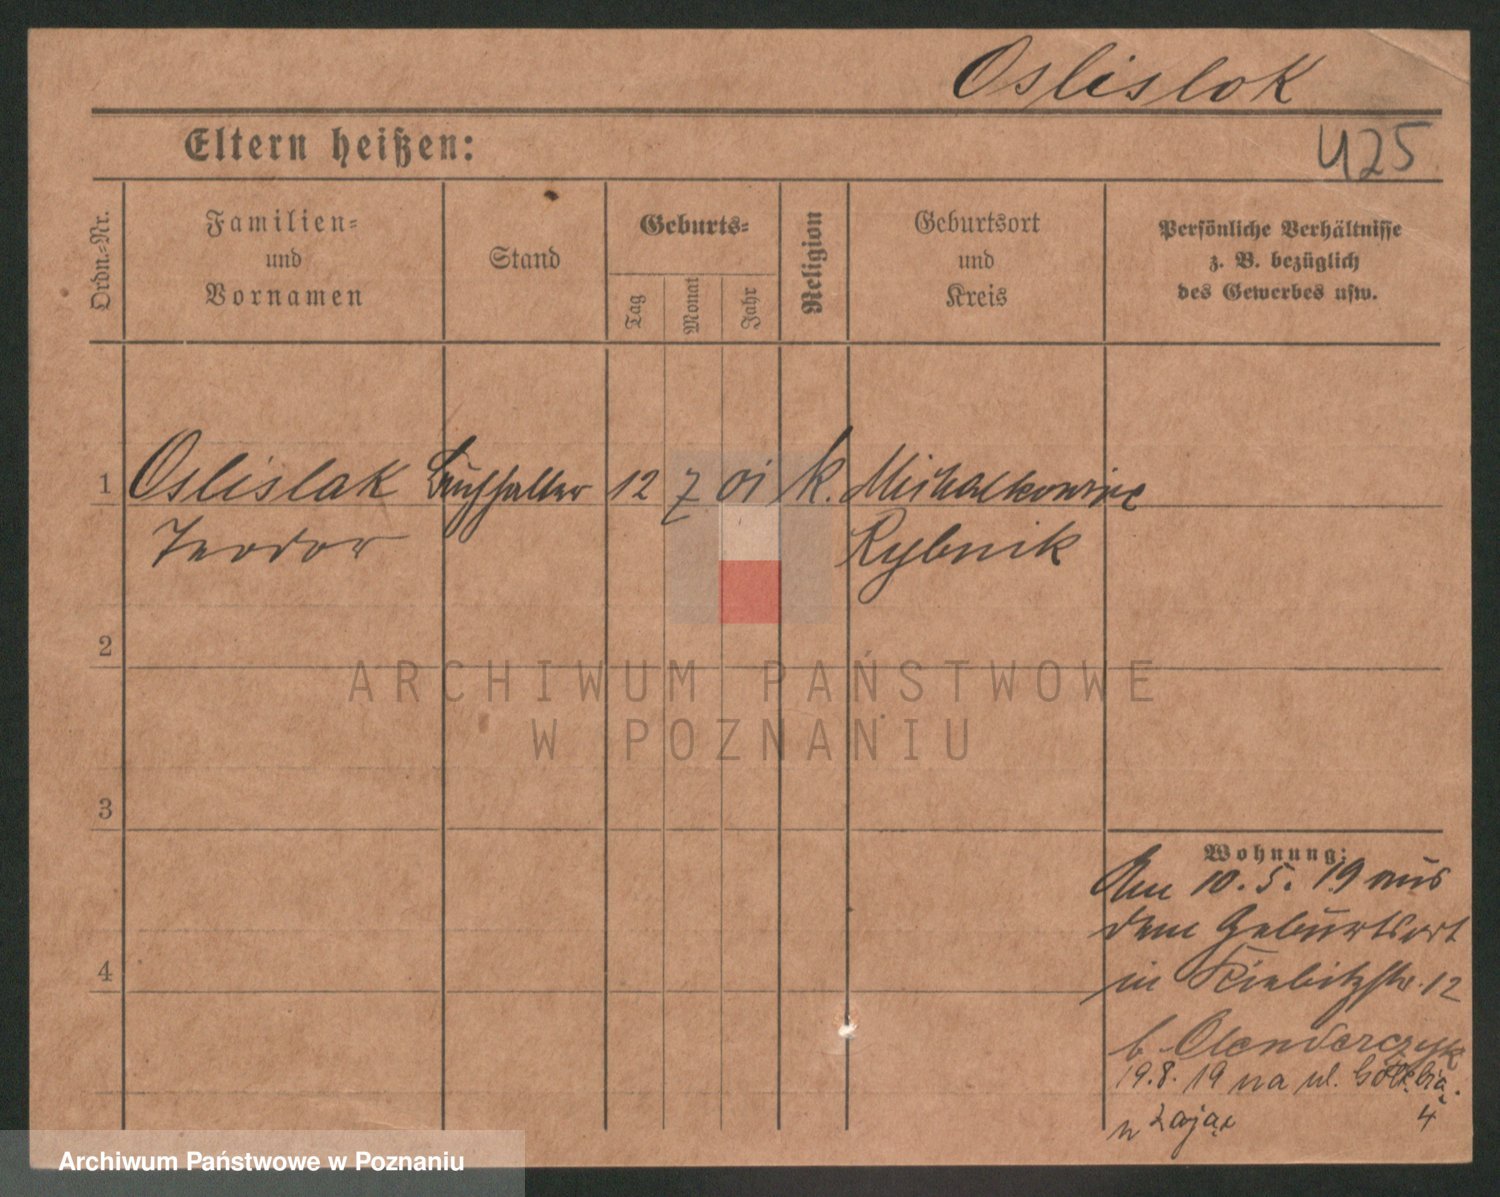 Oslislok
Eltern heißen:
425
Ordn.-Nr.
Familien-
und
Vornamen
Stand
Geburts-
Tag
Monat
Jahr
Religion
Geburtsort
und
Kreis
Persönliche Verhältnisse
z. B. bezüglich
des Gewerbes usw.
1 Oslislak Buchhalter 12 7 01 k.
Teodor Rybnik
2
ARCHIWUM PAŃSTWOWE
W POZNANIU
3
Wohnung:
Am 10.5.19 aus
dem Geburtsort
in Kiebitzstr. 12
4
b. Olenderczyk
19.8.19 na ul.
4
u Zając
Archiwum Państwowe w Poznaniu